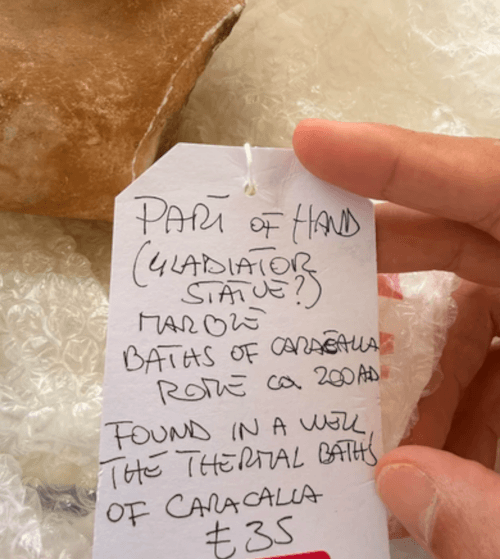 PART OF HAND
(GLADIATOR
STATUE?)
MARBLE
BATHS OF CARACALLA
ROME ca. 200 AD
FOUND IN A WELL,
THE THERMAL BATHS
OF CARACALLA
£35